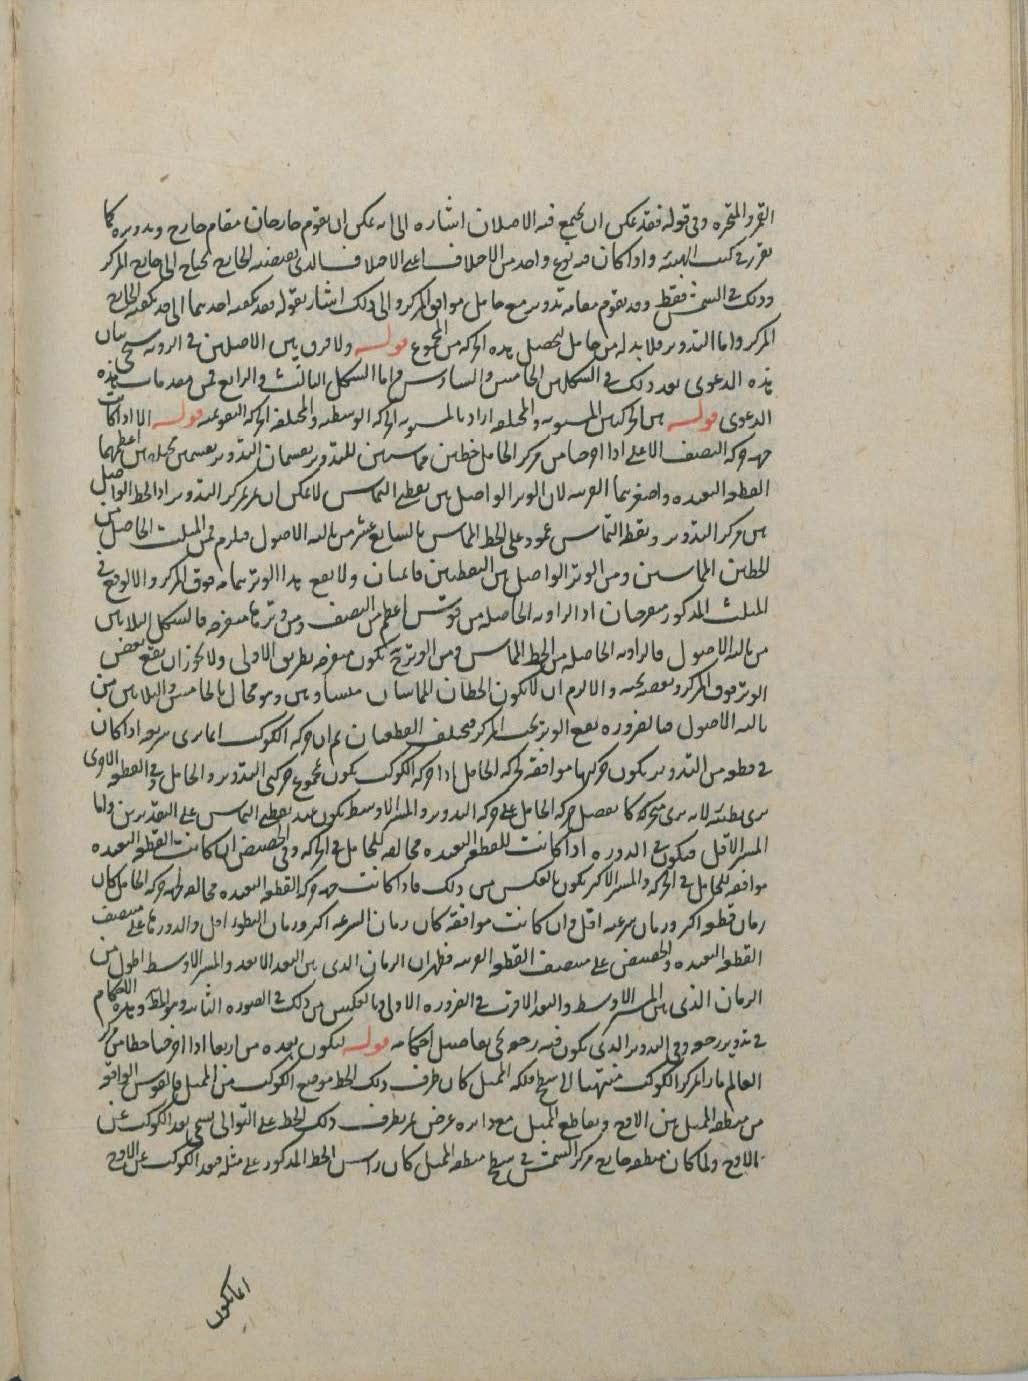 القمر والمتحيره وفى قوله فقد يمكن ان يجتمع فيه الاصلان اشاره الى انه يمكن ان يقوم خارجان مقام خارج وتدويره كما
تقرر فى كتب الهيئه واذا كان فيه نوع واحد من الاختلاف اعنى الاختلاف الذى يقتضيه الخارج يحتاج الى خارج المركز
وذلك فى الشمس فقط وقد يقوم مقامه تدوير مع حامل موافق المركز والى ذلك اشار بقوله فقد يكفيه احدهما الى قد يكفيه الخارج
المركز واما التدوير فلا بد له من حامل ليحصل هذه الحركه من المجموع قوله ولا فرق بين الاصلين فى الرويه سيجى بيان
هذه الدعوى بعد ذلك فى الشكلين الخامس والسادس واما الشكل الثالث والرابع فمن مقدمات هذه
الدعوى قوله بين الحركتين المستويه والمختلفه اراد بالمستويه الحركه الوسطيه والمختلفه الحركه التقويميه قوله الا اذا كانت
جهه حركه النصف الاعلى اذا اخرجنا من مركز الحامل خطين مماسين للتدوير يقسمان التدوير بقسمين مختلفين اعظمهما
القطعه البعيده واصغرهما القريبه لان الوتر الواصل بين نقطتى التماس لا يمكن ان يمر بمركز التدوير اذ الخط الواصل
بين مركز التدوير ونقطه التماس عمود على الخط المماس بالسابع عشر من ثالثه الاصول فيلزم فى المثلث الحاصل من
الخطين المماسين ومن الوتر الواصل بين النقطتين قائمتان ولا يقع هذا الوتر بتمامه فوق المركز والا لوقع فى
المثلث المذكور منفرجتان اذ الزاويه الحاصله من قوس اعظم من النصف ومن وترها منفرجه بالشكل الثلاثين
من ثالثه الاصول فالزاويه الحاصله من الخط المماس ومن الوتر يكون منفرجه بطريق الاولى ولا يجوز ان يقع بعض
الوتر فوق المركز وبعضه تحته والا لزم ان لا يكون الخطان المماسان متساويين وهو محال بالخامس والثلاثين من
ثالثه الاصول فبالضروره يقع الوتر تحت المركز فيختلف القطعتان ثم ان حركه الكوكب انما يرى سريعه اذا كان
فى قطعه من التدوير يكون حركتها موافقه لحركه الحامل اذ حركه الكوكب يكون مجموع حركتى التدوير والحامل وفى القطعه الاخرى
يرى بطيئه لانه يرى متحركا بفضل حركه الحامل على حركه التدوير والمسير الاوسط يكون عند نقطتى التماس على التقديرين واما
المسير الاقل فيكون فى الذروه اذا كانت القطعه البعيده مخالفه للحامل فى الحركه وفى الحضيض ان كانت القطعه البعيده
موافقه للحامل فى الحركه والمسير الاكثر يكون بالعكس من ذلك فاذا كانت جهه حركه القطعه البعيده مخالفه لجهه حركه الحامل كان
زمان بطؤه اكثر وزمان سرعته اقل وان كانت موافقه كان زمان السرعه اكثر وزمان البطؤ اقل والذروه على منتصف
القطعه البعيده والحضيض على منتصف القطعه القريبه فظهر ان الزمان الذى بين البعد الابعد والمسير الاوسط اطول من
الزمان الذى بين المسير الاوسط والبعد الاقرب فى الضروره الاولى وبالعكس من ذلك فى الصوره الثانيه وهو المط وهذه الاحكام
فى تدوير رجوعى والتدوير الذى يكون فيه رجوع يجى تفاصيل احكامه قوله ليكون بعده من اربعا اذا اخرجنا خطا من مركز
العالم مارا بمركز الكوكب منتهيا الى سطح فلكه الممثل كان طرف ذلك الخط موضع الكوكب من الممثل فالقوس الواقعه
من منطقه الممثل بين الاوج وتقاطع الممثل مع دائره عرض يمر بطرف ذلك الخط على التوالى يسمى بعد الكوكب عن
الاوج ولما كان منطقه خارج مركز الشمس فى سطح منطقه الممثل كان راس الخط المذكور على مثله فبعد الكوكب عن الاوج
انما يكون